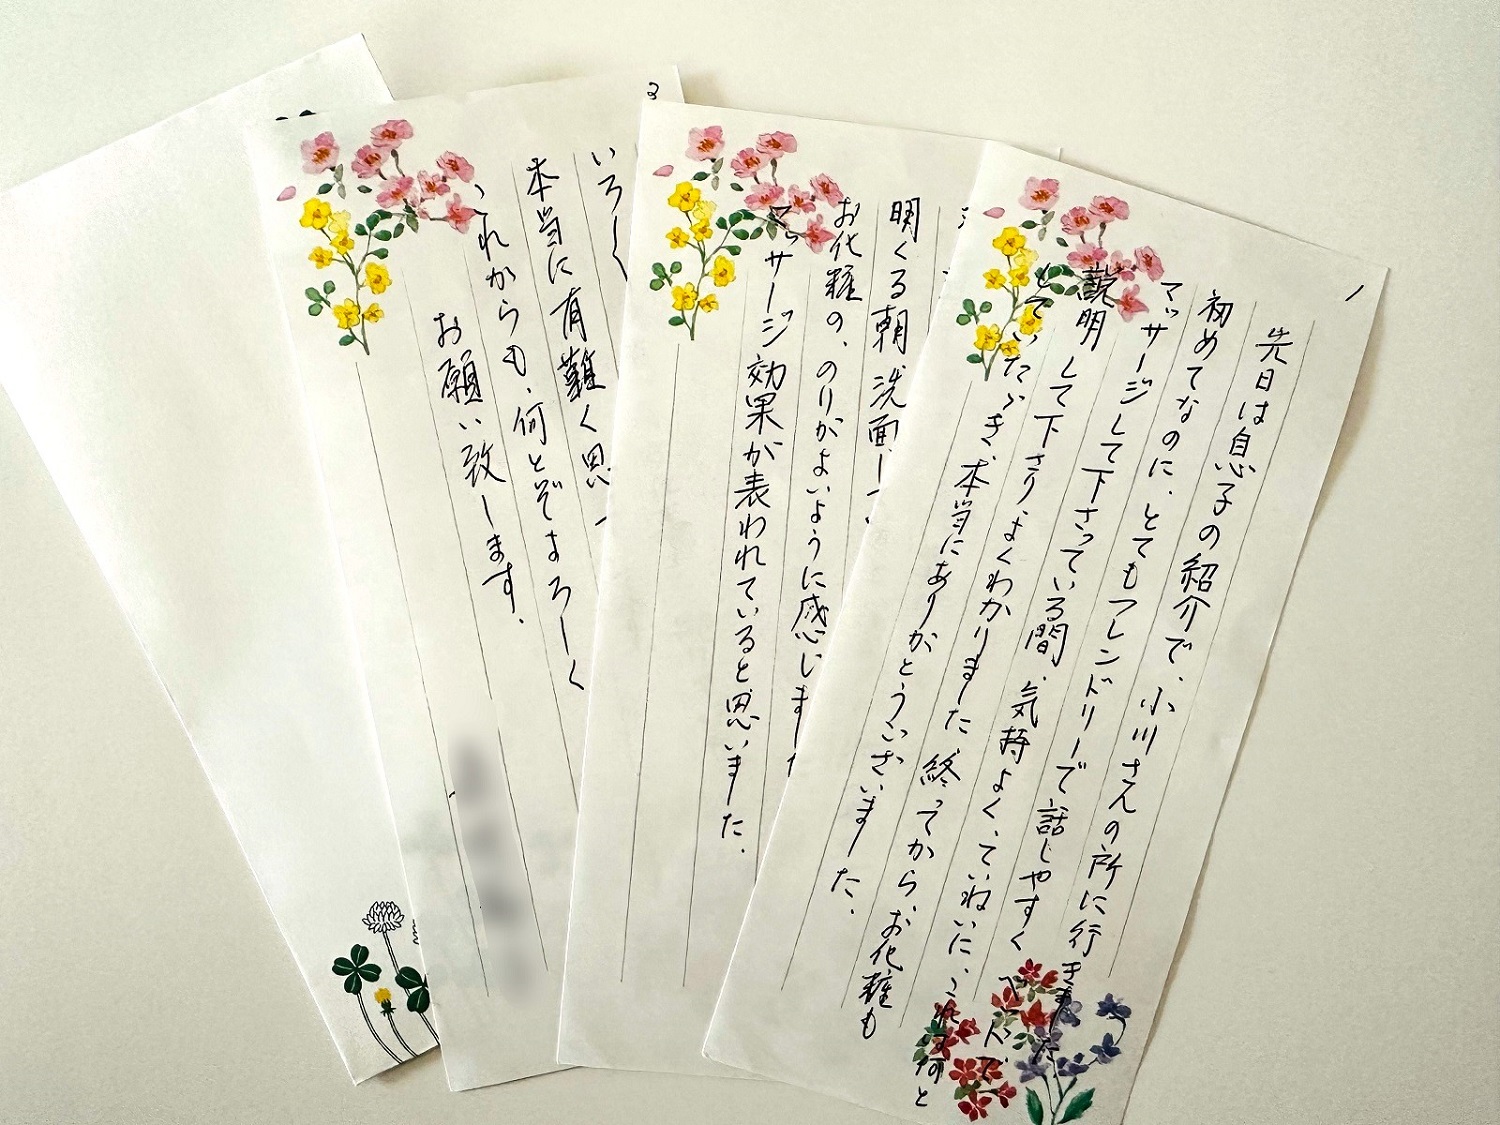 1
先日は息子の紹介で、小川さんの所に行きました
初めてなのに、とてもフレンドリーで話しやすく
マッサージして下さっている間、気持よく、ていねいに、これは何と
説明して下さり、よくわかりました、終ってから、お化粧も
していただき、本当にありがとうございました。
明くる朝、洗面し
お化粧の、のりがよいように感じました
マッサージ効果が表われていると思いました。
3
いろいろ
本当に有難く思い
これからも、何とぞよろしく
お願い致します。